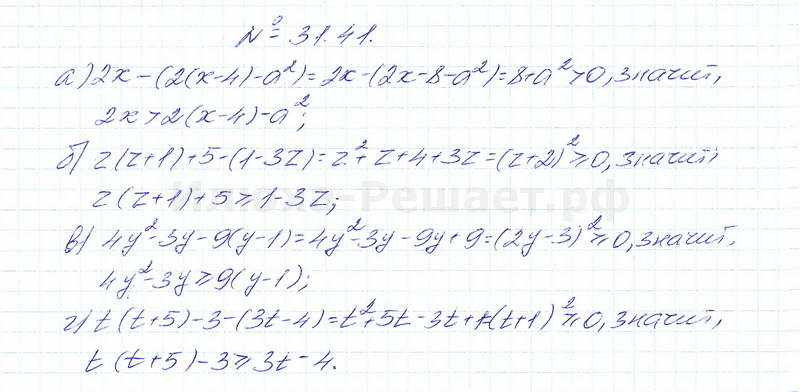 № 31.41.
а) 2x-(2(x-4)-a²)=2x-(2x-8-a²)=8+a²>0, значит,
2x>2(x-4)-a²;
б) z(z+1)+5-(1-3z)=z²+z+4+3z=(z+2)²≥0, значит
z(z+1)+5≥1-3z;
в) 4y²-3y-9(y-1)=4y²-3y-9y+9=(2y-3)²≥0, значит,
4y²-3y≥9(y-1);
г) t(t+5)-3-(3t-4)=t²+5t-3t+1=(t+1)²≥0, значит,
t(t+5)-3≥3t-4.